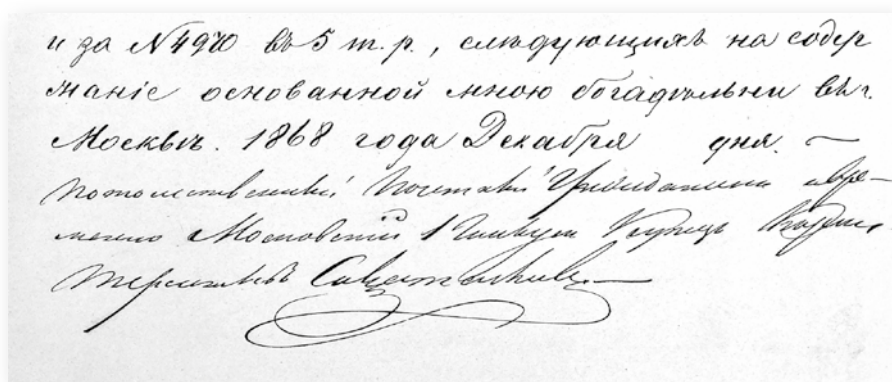 и за №4970 въ 5 т. р., слѣдующихъ на содер
жаніе основанной мною богадѣльни въ г.
Москвѣ. 1868 года Декабря дня. —
Потомственный Почетный Гражданинъ вре-
менно Московскій 1 Гильдіи Купецъ
Солдатенковъ